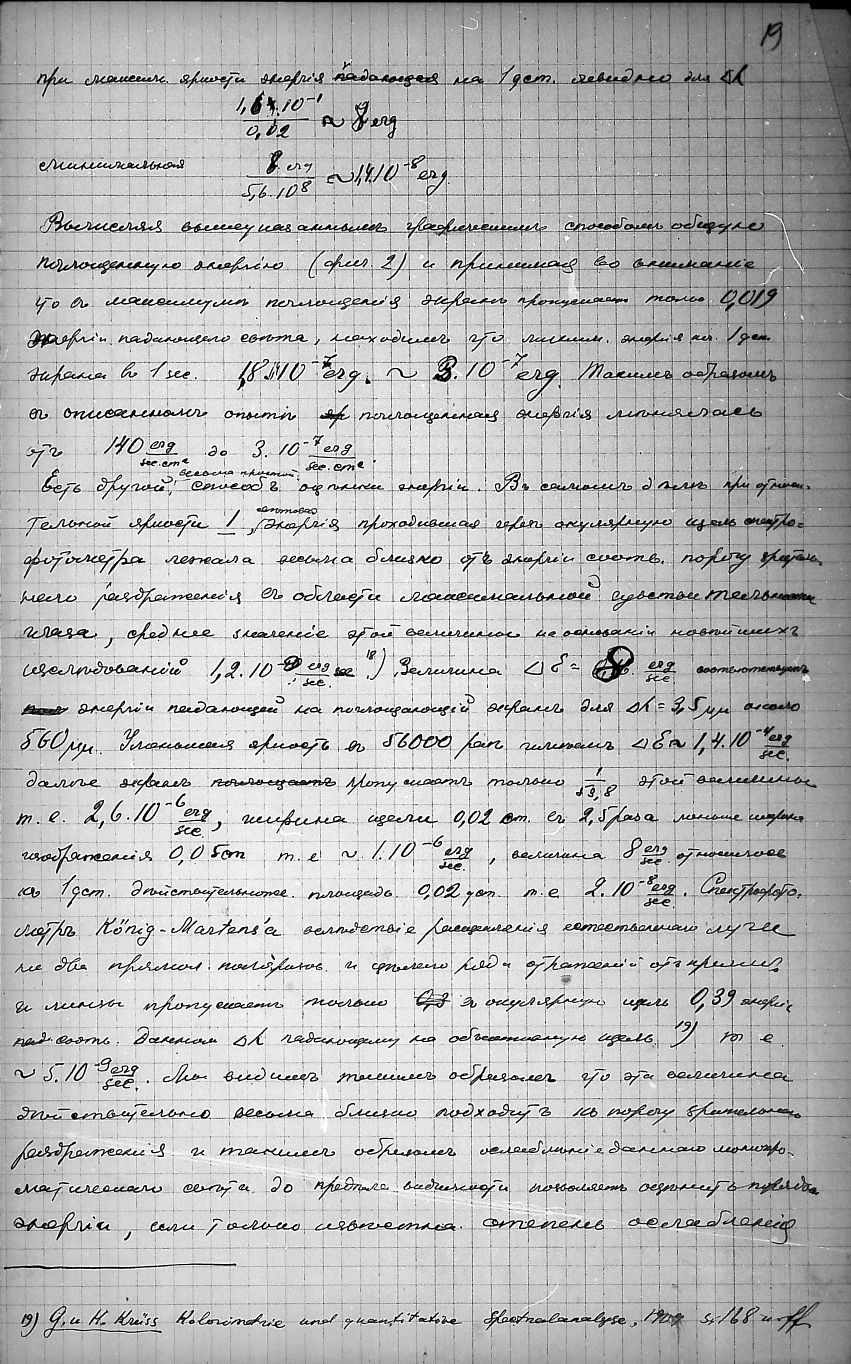 19
при максим. яркости энергія падающая на 1 qcm. очевидно для Δλ
1,64.10⁻¹ / 0,02 ~ 8 erg
минимальная 8 erg / 5,6.10⁸ ~ 1,4.10⁻⁸ erg.
Вычисляя вышеуказаннымъ графическимъ способомъ общую
поглощенную энергію (фиг. 2) и принимая во вниманіе
что въ максимумѣ поглощенія экранъ пропускаетъ только 0,019
энергіи падающаго свѣта, находимъ что миним. энергія на 1 qcm
экрана въ 1 sec. 10⁻⁷ erg. ~ 3.10⁻⁷ erg. Такимъ образомъ
въ описанномъ опытѣ поглощенная энергія мѣнялась
отъ 140 erg/sec.cm² до 3.10⁻⁷ erg/sec.cm².
Есть другой, весьма простой способъ оцѣнки энергіи. Въ самомъ дѣлѣ при относи-
тельной яркости 1, свѣтовая энергія проходившая черезъ окулярную щель спектро-
фотометра лежала весьма близко отъ энергіи соотв. порогу зритель-
наго раздраженія въ области максимальной чувствительности
глаза, среднее значеніе этой величины на основаніи новѣйшихъ
изслѣдованій 1,2.10⁻⁹ erg/sec. ¹⁸) Величина Δℰ = 8 erg/sec соотвѣтствуетъ
энергіи падающей на поглощающій экранъ для Δλ = 3,5 μμ около
560 μμ. Уменьшая яркость въ 56000 разъ имѣемъ Δℰ ~ 1,4.10⁻⁴ erg/sec.
далѣе экранъ поглощаетъ пропускаетъ только 1/53,8 этой величины
т. е. 2,6.10⁻⁶ erg/sec., ширина щели 0,02 cm. въ 2,5 раза меньше ширины
изображенія 0,05 cm т. е. ~ 1.10⁻⁶ erg/sec., величина 8 erg/sec. относилась
къ 1 qcm. дѣйствительная площадь 0,02 qcm. т. е. 2.10⁻⁸ erg/sec. Спектрофото-
метръ König-Martens'a вслѣдствіе расщепленія естественнаго луча
на два прямол. поляризов. и цѣлаго ряда отраженій отъ призмъ
и линзъ пропускаетъ только въ окулярную щель 0,39 энергіи
соотв. данному Δλ падающему на объективную щель ¹⁹) т. е.
~ 5.10⁻⁹ erg/sec. Мы видимъ такимъ образомъ что эта величина
дѣйствительно весьма близко подходитъ къ порогу зрительнаго
раздраженія и такимъ образомъ ослабленіе даннаго монохро-
матическаго свѣта до предѣла видимости позволяетъ оцѣнить порядокъ
энергіи, если только извѣстна степень ослабленія
19) G. u. H. Krüss Kolorimetrie und quantitative Spektralanalyse, 1909 S. 168 u. ff